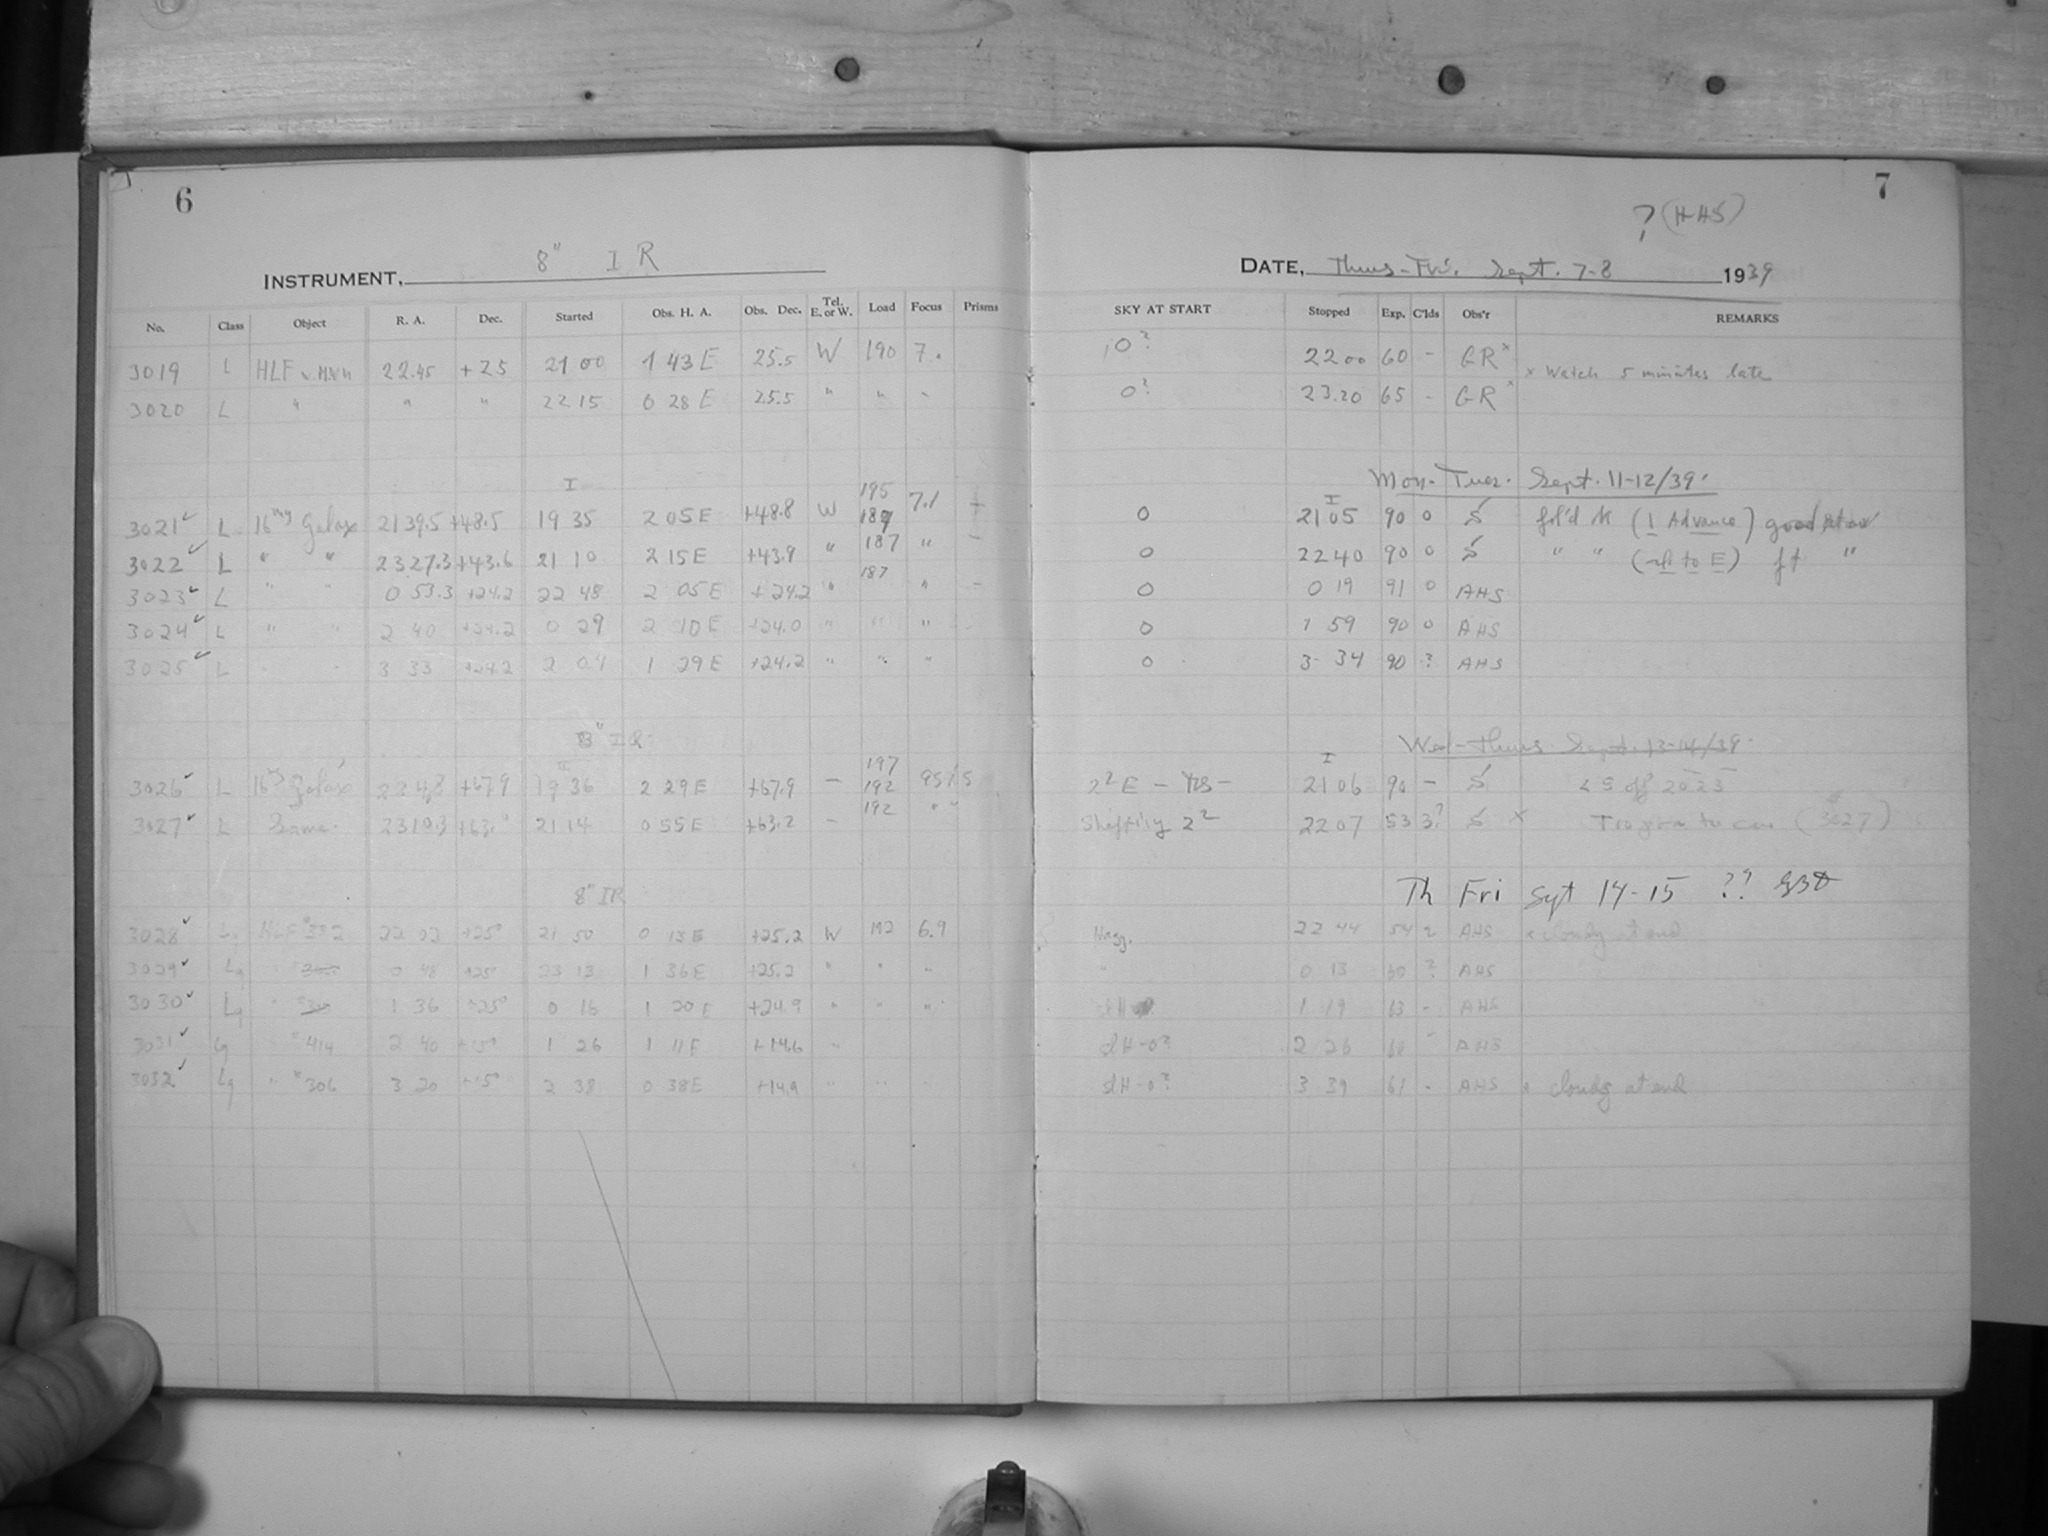 6
8" I R
INSTRUMENT,
No. Class Object R. A. Dec. Started Obs. H. A. Obs. Dec. Tel. E. or W. Load Focus Prisms
3019 L HLF 22.45 +25 21 00 1 43 E 25.5 W 190 7.
3020 L " " " 22 15 0 28 E 25.5 " " -
I
195
3021 ✓ L 16 mg Galax 21 39.5 +48.5 19 35 2 05 E +48.8 W 7.1
3022 ✓ L " " 23 27.3 +43.6 21 10 2 15 E +43.9 " 187 " -
3023 ✓ L " " 0 53.3 +24.2 22 48 2 05 E +24.2 " 187 " -
3024 ✓ L " " 2 40 +24.2 0 29 2 10 E +24.0 " " "
3025 ✓ L " " 3 33 +24.2 2 04 1 29 E +24.2 " " "
8" IR
197
3026 ✓ L 16 mg Galax +67.9 19 36 2 29 E +67.9 - 192
3027 ✓ L Same 23 19.3 21 14 0 55 E +63.2 - 192 " "
8" IR
3028 ✓ HLF 332 22 02 +25° 21 50 0 13 E +25.2 W 192 6.9
3029 ✓ L 0 48 +25° 23 13 1 36 E +25.2 " " "
3030 ✓ L " 1 36 +25° 0 16 1 20 E +24.9 " " "
3031 ✓ " " 414 2 40 +15° 1 26 1 11 E +14.6 "
3032 ✓ " " 306 3 20 +15° 2 38 0 38 E +14.9 " "
7
? (HHS)
DATE, Thurs-Fri. Sept. 7-8 1939
SKY AT START Stopped Exp. C'lds Obs'r REMARKS
10? 22 00 60 - GR x x Watch 5 minutes late
0? 23.20 65 - GR x
Mon-Tues. Sept. 11-12/39.
I
0 21 05 90 0 S fol'd (1 Advance) good
0 22 40 90 0 S " " to E) "
0 0 19 91 0 AHS
0 1 59 90 0 AHS
0 3 34 90 ? AHS
Wed-Thurs Sept. 13-14/39
I
21 06 90 - S
22 07 53 3? S x (3027)
Th Fri Sept 14-15 ??
Hazy. 22 44 54 AHS x cloudy at end
" 0 13 ? AHS
1 19 63 - AHS
slH-0? 2 26 60 - AHS
slH-0? 3 39 61 - AHS x cloudy at end